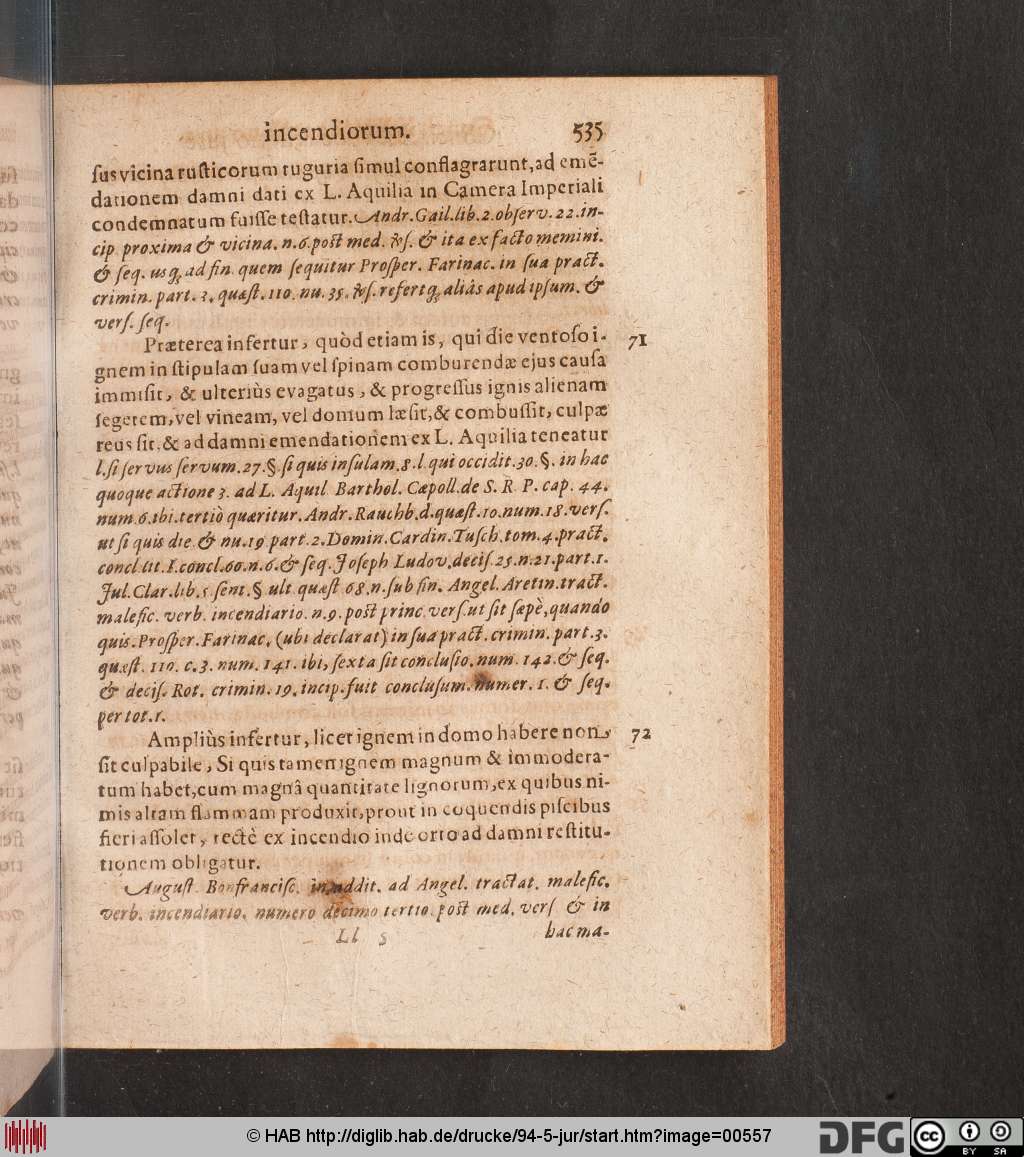 incendiorum. 535
ſus vicina ruſticorum tuguria ſimul conflagrarunt, ad emẽ-
dationem damni dati ex L. Aquilia in Camera Imperiali
condemnatum fuiſſe teſtatur. Andr. Gail. lib. 2. obſerv. 22. in-
cip. proxima & vicina. n. 6. poſt med. & ita ex facto memini.
& ſeq. usq; ad fin. quem ſequitur Proſper. Farinac. in ſua pract.
crimin. part. 3. quæſt. 110. nu. 35. refert q; aliàs apud ipſum. &
verſ. ſeq.
Præterea infertur, quòd etiam is, qui die ventoſo i- 71
gnem in ſtipulam ſuam vel ſpinam comburendæ ejus cauſa
immiſit, & ulteriùs evagatus, & progreſſus ignis alienam
ſegetem, vel vineam, vel domum læſit, & combuſſit, culpæ
reus ſit, & ad damni emendationem ex L. Aquilia teneatur
l. ſi ſervus ſervum. 27. §. ſi quis inſulam. 8. l. qui occidit. 30. §. in hac
quoque actione 3. ad L. Aquil. Barthol. Cæpoll. de S. R. P. cap. 44.
num. 6. ibi. tertiò quæritur. Andr. Rauchb. d. quæſt. 10. num. 18. verſ.
ut ſi quis die. & nu. 19. part. 2. Domin. Cardin. Tuſch. tom. 4. pract.
concl. lit. I. concl. 60. n. 6. & ſeq. Joſeph Ludov. deciſ. 25. n. 21. part. 1.
Jul. Clar. lib. 5. ſent. § ult. quæſt. 68. n. ſub fin. Angel. Aretin. tract.
malefic. verb. incendiario. n. 9. poſt princ. verſ. ut ſit ſæpè, quando
quis. Proſper. Farinac. (ubi declarat) in ſua pract. crimin. part. 3.
quæſt. 110. c. 3. num. 141. ibi, ſexta ſit concluſio. num. 142. & ſeq.
& deciſ. Rot. crimin. 19. incip. fuit concluſum. numer. 1. & ſeq.
per tot. 1.
Ampliùs infertur, licet ignem in domo habere non 72
ſit culpabile, Si quis tamen ignem magnum & immodera-
tum habet, cum magnâ quantitate lignorum, ex quibus ni-
mis altam flammam produxit, prout in coquendis piſcibus
fieri aſſolet, rectè ex incendio inde orto ad damni reſtitu-
tionem obligatur.
Auguſt. Bonfranciſc. in addit. ad Angel. tractat. malefic.
verb. incendiario. numero decimo tertio. poſt med. verſ. & in
Ll 5 hac ma-
© HAB http://diglib.hab.de/drucke/94-5-jur/start.htm?image=00557
DFG
cc BY SA